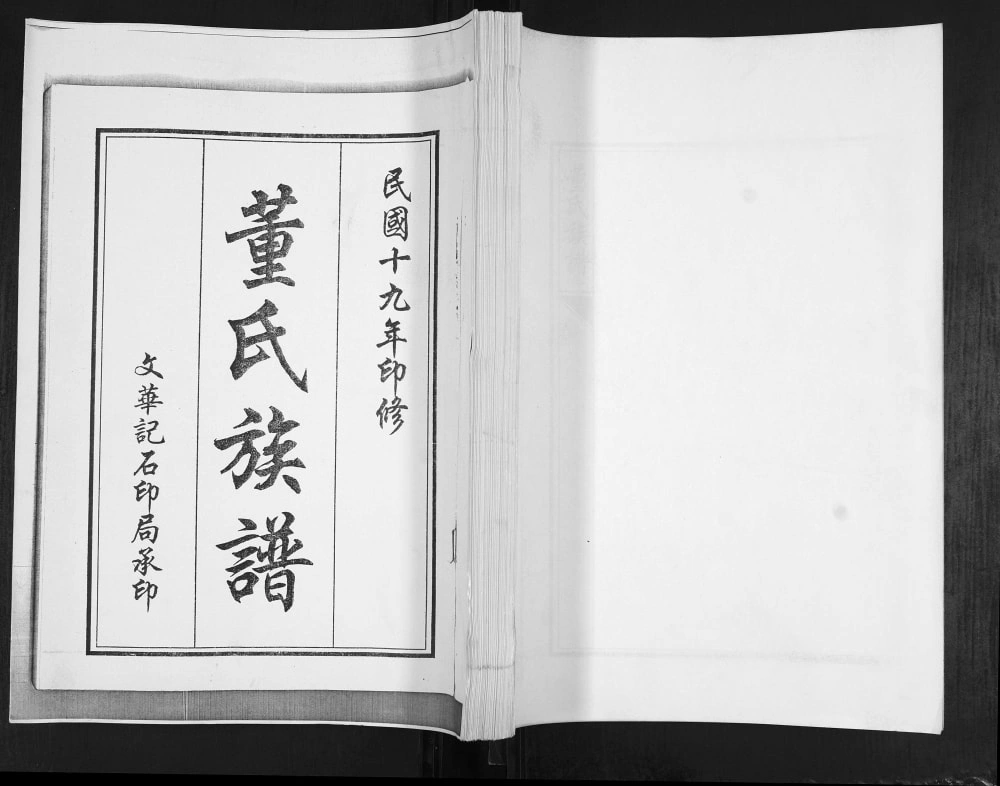 民國十九年印修
董氏族譜
文華記石印局承印